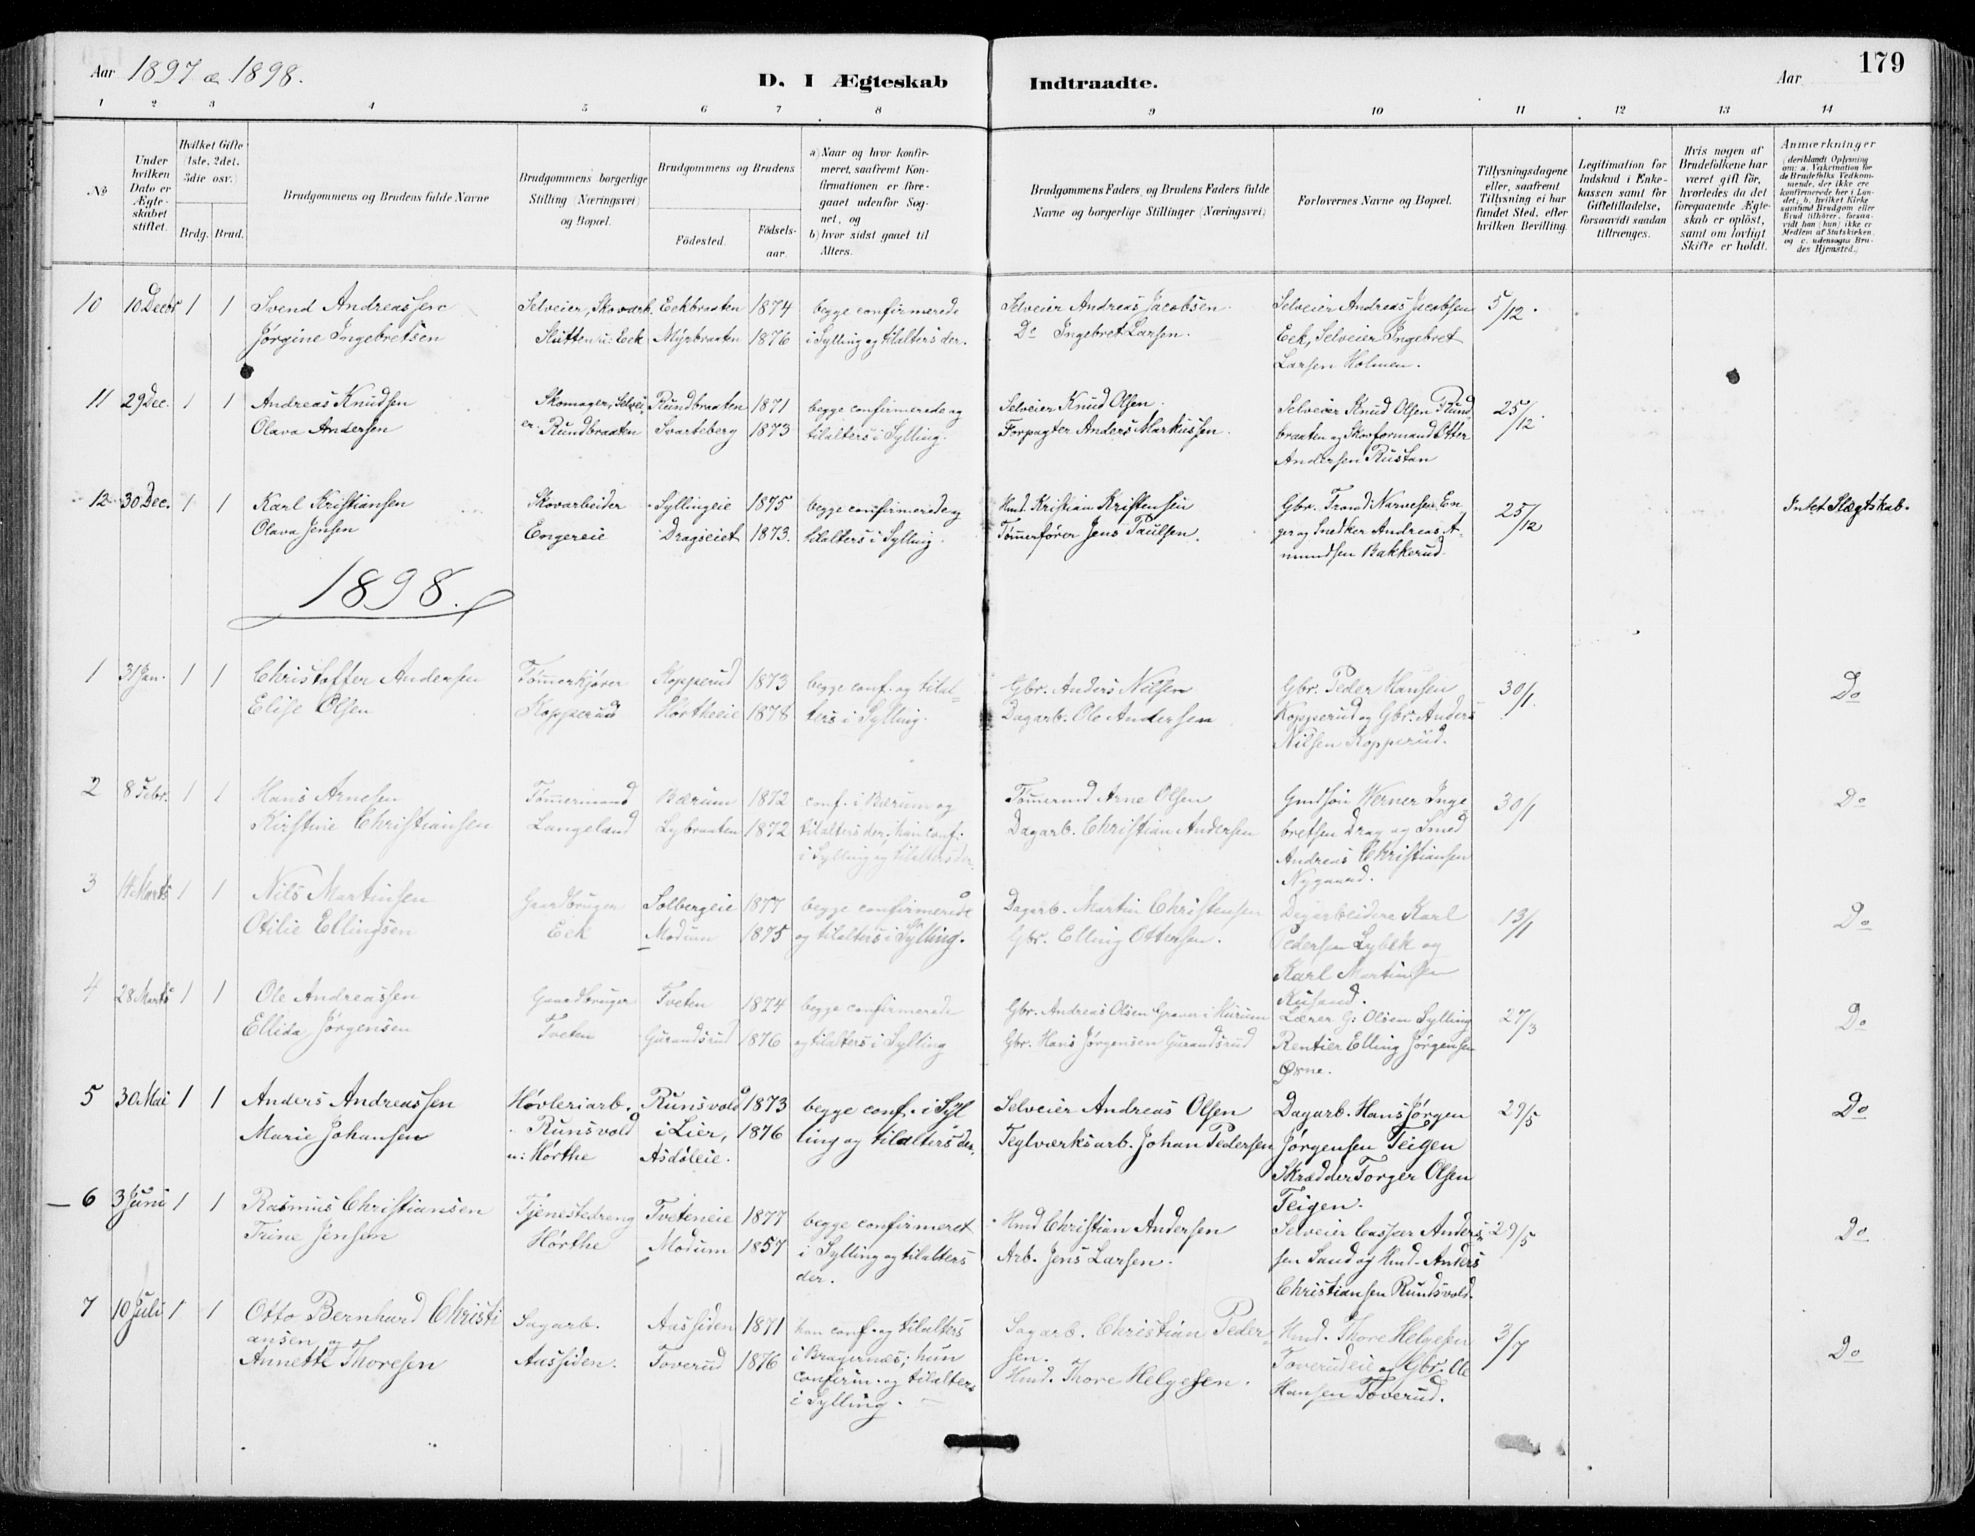 Aar 1897 & 1898.
D. I Ægteskab Indtraadte.
Aar
179
1 2 3 4 5 6 7 8 9 10 11 12 13 14
No
Under hvilken Dato er Ægteskabet stiftet.
Hvilket Gifte (1ste, 2det, 3die osv.)
Brdg. Brud.
Brudgommens og Brudens fulde Navne
Brudgommens borgerlige Stilling (Næringsvei) og Bopæl.
Brudgommens og Brudens
Fødested.
Fødselsaar.
a) Naar og hvor konfirmeret, saafremt Konfirmationen er foregaaet udenfor Sognet, og
b) hvor sidst gaaet til Alters.
Brudgommens Faders, og Brudens Faders fulde Navne og borgerlige Stillinger (Næringsvei)
Forlovernes Navne og Bopæl.
Tillysningsdagene eller, saafremt Tillysning ei har fundet Sted, efter hvilken Bevilling.
Legitimation for Indskud i Enkekassen samt for Giftetilladelse, forsaavidt saadan tiltrænges.
Hvis nogen af Brudefolkene har været gift før, hvorledes da det foregaaende Ægteskab er opløst, samt om lovligt Skifte er holdt.
Anmerkninger
10 10 Decbr 1 1 Svend Andreassen Selveier, Skovarb. Eekbraaten 1874 begge confirmerede Selveier Andreas Jacobsen Selveier Andreas Jacobsen 5/12.
Jørgine Ingebretsen Slutten u: Eek Myrbraaten 1876 i Sylling og tilalters der. Do Ingebret Larsen. Eek, Selveier Ingebret
Larsen Holmen.
11 29 Dec. 1 1 Andreas Knudsen Skomager, Selvei Rundbraaten 1871 begge confirmerede og Selveier Knud Olsen. Selveier Knud Olsen Rund 25/12.
Olava Andersen er. Rundbraaten Svarteberg 1873 tilalters i Sylling. Forpagter Anders Markussen. braaten og Skovformand Otter
Andersen Rustan
12 30 Dec. 1 1 Karl Kristiansen Skovarbeider Syllingeie 1875 begge confirmerede og Hmd. Kristian Kristensen Gbr. Trond Narvesen En 25/12 Intet Slægtskab.
Olava Jensen Engereie Dragseiet 1873. tilalters i Sylling. Tømmerfører Jens Paulsen. ger og Snedker Andreas A-
mundsen Bakkerud.
1898.
1 31 Jan. 1 1 Christoffer Andersen Tømmerkjører Kopperud 1873 begge conf. og tilal- Gbr. Anders Nilsen Gbr. Peder Hansen 30/1. Do
Elise Olsen Kopperud Hørtheeie 1878 ters i Sylling. Dagarb. Ole Andersen Kopperud og Gbr. Anders
Nilsen Kopperud.
2 8 Febr. 1 1 Hans Arnesen Tømmermand Bærum 1872 conf. i Bærum og Tømermd Arne Olsen Werner Inge 30/1 Do
Kirstine Christiansen Langeland Lybraaten 1872 tilalters der. hun conf. Dagarb. Christian Andersen bretsen Drag og Smed
i Sylling og tilalters der. Andreas Christiansen
Nygaard.
3 14 Marts 1 1 Nils Martinsen Gaardbruger Solbergeie 1877 begge confirmerede Dagarb. Martin Christensen Dagarbeidere Karl 13/1 Do
Otilie Ellingsen Eek Modum 1875 og tilalters i Sylling. Gbr. Elling Ottersen. Pedersen Lybek og
Karl Martinsen
4 28 Marts 1 1 Ole Andreassen Gaardbruger Tveten 1874 begge confirmerede Gbr. Andreas Olsen Graver i Hurum Lærer G: Olsen Sylling 27/3 Do
Ellida Jørgensen Tveten Gurandsrud 1876 og tilalters i Sylling Gbr. Hans Jørgensen Gurandsrud Rentier Elling Jørgensen
Ovne.
5 30 Mai 1 1 Anders Andreassen Høvleriarb. Runsvold 1873 begge conf. i Syl Selveier Andreas Olsen Dagarb. Hans Jørgen 29/5 Do
Marie Johansen Runsvold i Lier, 1876 ling og tilalters der. Teglværksarb. Johan Pedersen Jørgensen Teigen
u: Hørthe Asdøleie. Skrædder Torger Olsen
Teigen.
6 3 Juni 1 1 Rasmus Christiansen Tjenestedreng Tveteneie 1877 begge confirmeret Hmd Christian Andersen Selveier Casper Anders 29/5 Do
Trine Jensen Hørthe Modum 1857 i Sylling og tilalters Arb. Jens Larsen. sen Sand og Hmd. Anders
der. Christiansen Rundsvold.
7 10 Juli 1 1 Otto Bernhard Christi Sagarb. Aassiden 1871 han conf. og tilalters Sagarb. Christian Peder- Hmd. Thore Helgesen 3/7 Do
ansen og i Bragernæs; hun sen. Toverudeie og Gbr. Ole
Annette Thoresen Aassiden. Toverud 1876 confirm. og tilalters Hmd. Thore Helgesen. Hansen Toverud.
i Sylling.